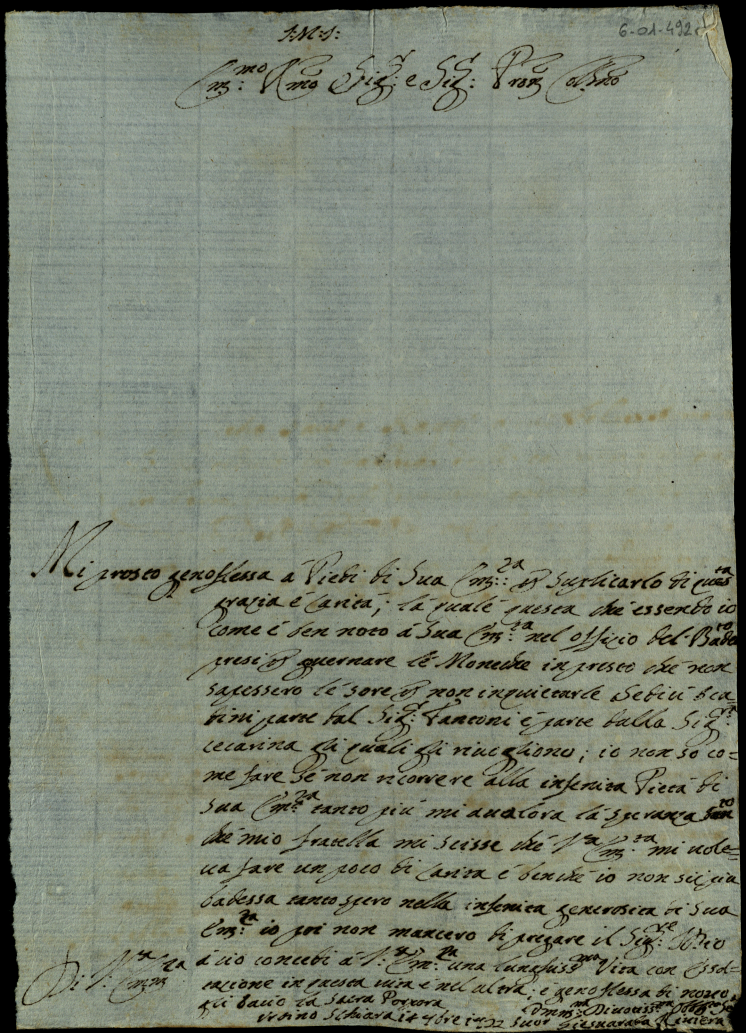 J: M: J:
6-01-492r
Em:mo Rmo Sig:r e Sig:r Pron Col:mo
Mi prosto genoflessa à Piedi di Sua Em:za p suplicarlo di questa
grazia è Carità; la quale questa chè essendo io
come è ben noto à Sua Em:za nel offizio del Badato
presi p guernare le Moneche in presto chè non
sapessero le sore p non inquietarle
parte dal Sig:r Fantoni è parte dalla Sig:ra
cecarina gli quali gli riuogliono; io non so co-
me fare sè non ricorrere alla infenita Pietà di
Sua Em:za tanto piu mi aualora la speranza
chè mio fratella mi scisse chè V:ra Em:za mi uole-
ua fare un poco di Carità è benchè io non sij piu
badessa tanto spero nella infenita generosità di Sua
Em:za io poi non mancero di pregare il Sig:re Idio
à cio concedi à V:ra Em:za una lunghiss:ma Vita con Essal-
tacione in questa uita è nel altra; è genoflessa di nouo
gli bacio la Sacra Porpora
Di V:ra Em:za
Vrbino S Chiara
Suor Riviera